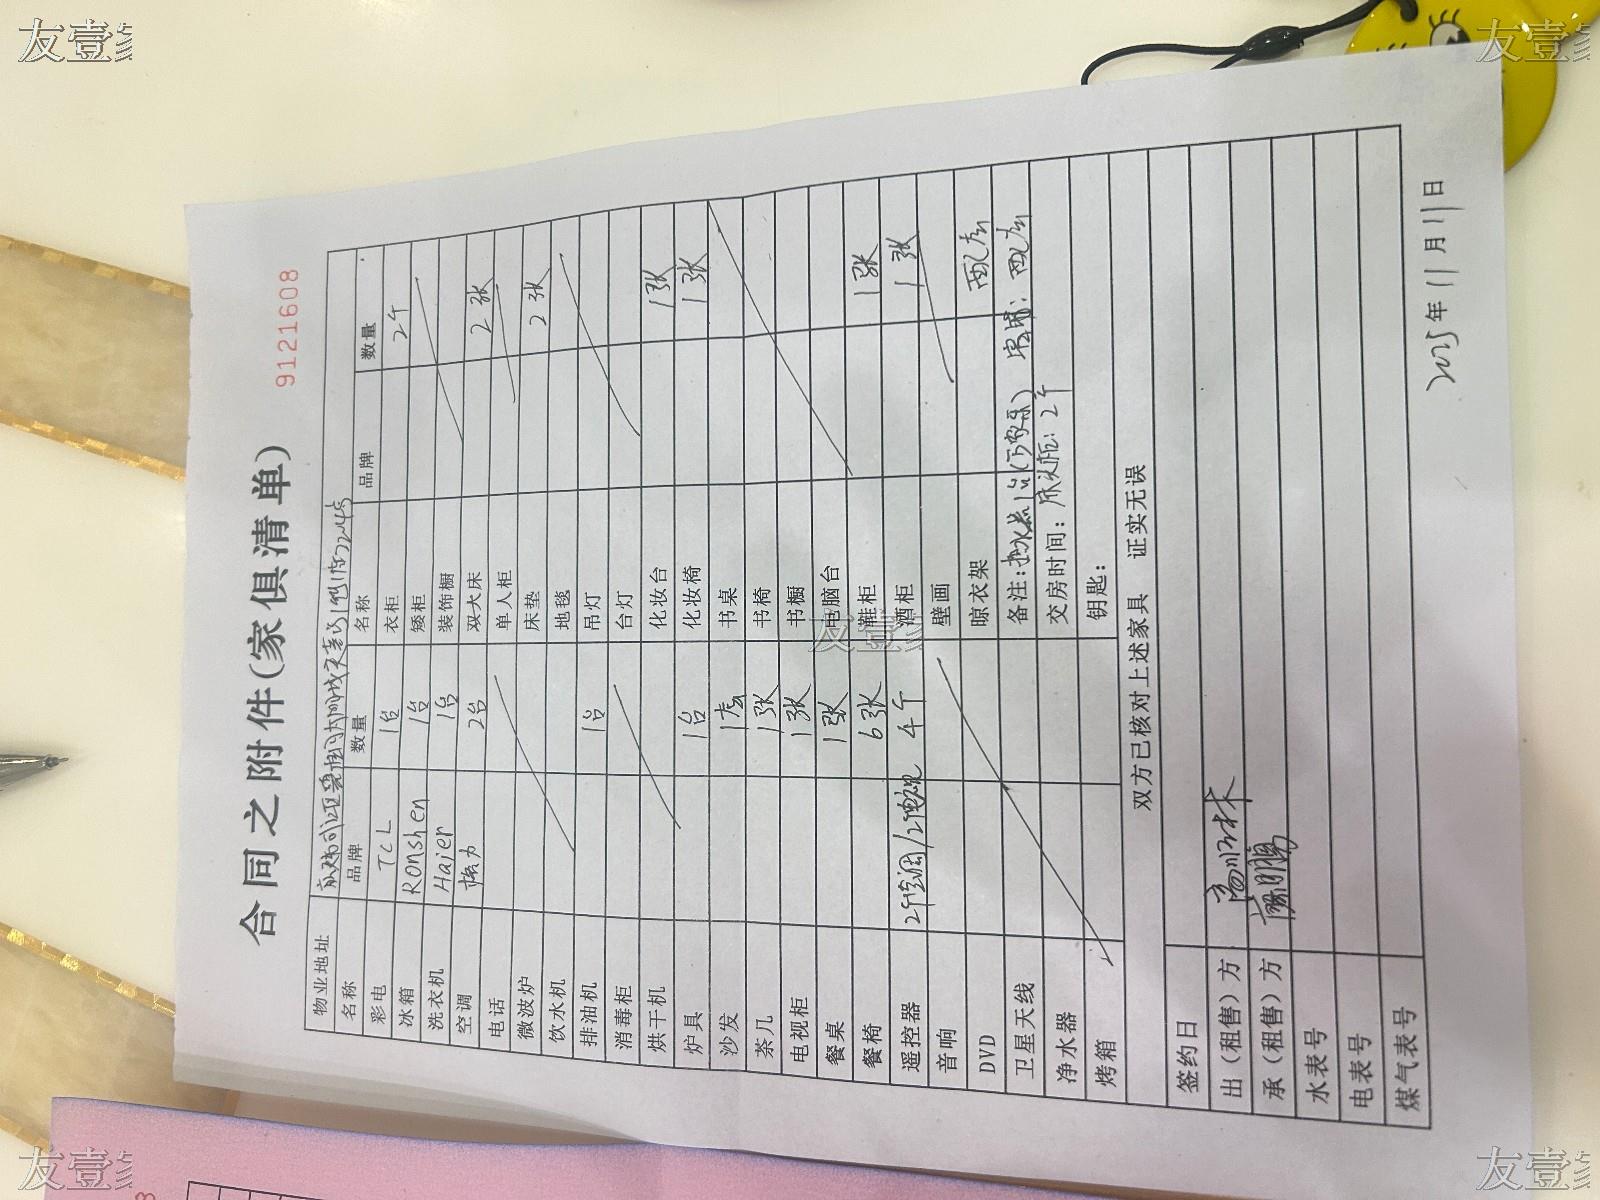 友壹家
友壹家
合同之附件(家俱清单)
9121608
物业地址
名称 品牌 数量 名称 品牌 数量
彩电 TCL 1台 衣柜 2个
冰箱 Ronshen 1台 矮柜
洗衣机 Haier 1台 装饰橱
空调 格力 2台 双大床 2张
电话 单人柜
微波炉 床垫 2张
饮水机 地毯
排油机 1台 吊灯
消毒柜 台灯
烘干机 化妆台 1张
炉具 1台 化妆椅 1张
沙发 1套 书桌
茶几 1张 书椅
电视柜 1张 书橱
餐桌 1张 电脑台
餐椅 6张 鞋柜 1张
遥控器 2个空调/2个电视 4个 酒柜 1张
音响 壁画
DVD 晾衣架
卫星天线 备注:热水器1台(万家乐)
净水器 交房时间:床头柜:2个
烤箱 钥匙:
双方已核对上述家具 证实无误
签约日
出(租售)方
承(租售)方
水表号
电表号
煤气表号
2025年11月11日
友壹家
友壹家
友壹家